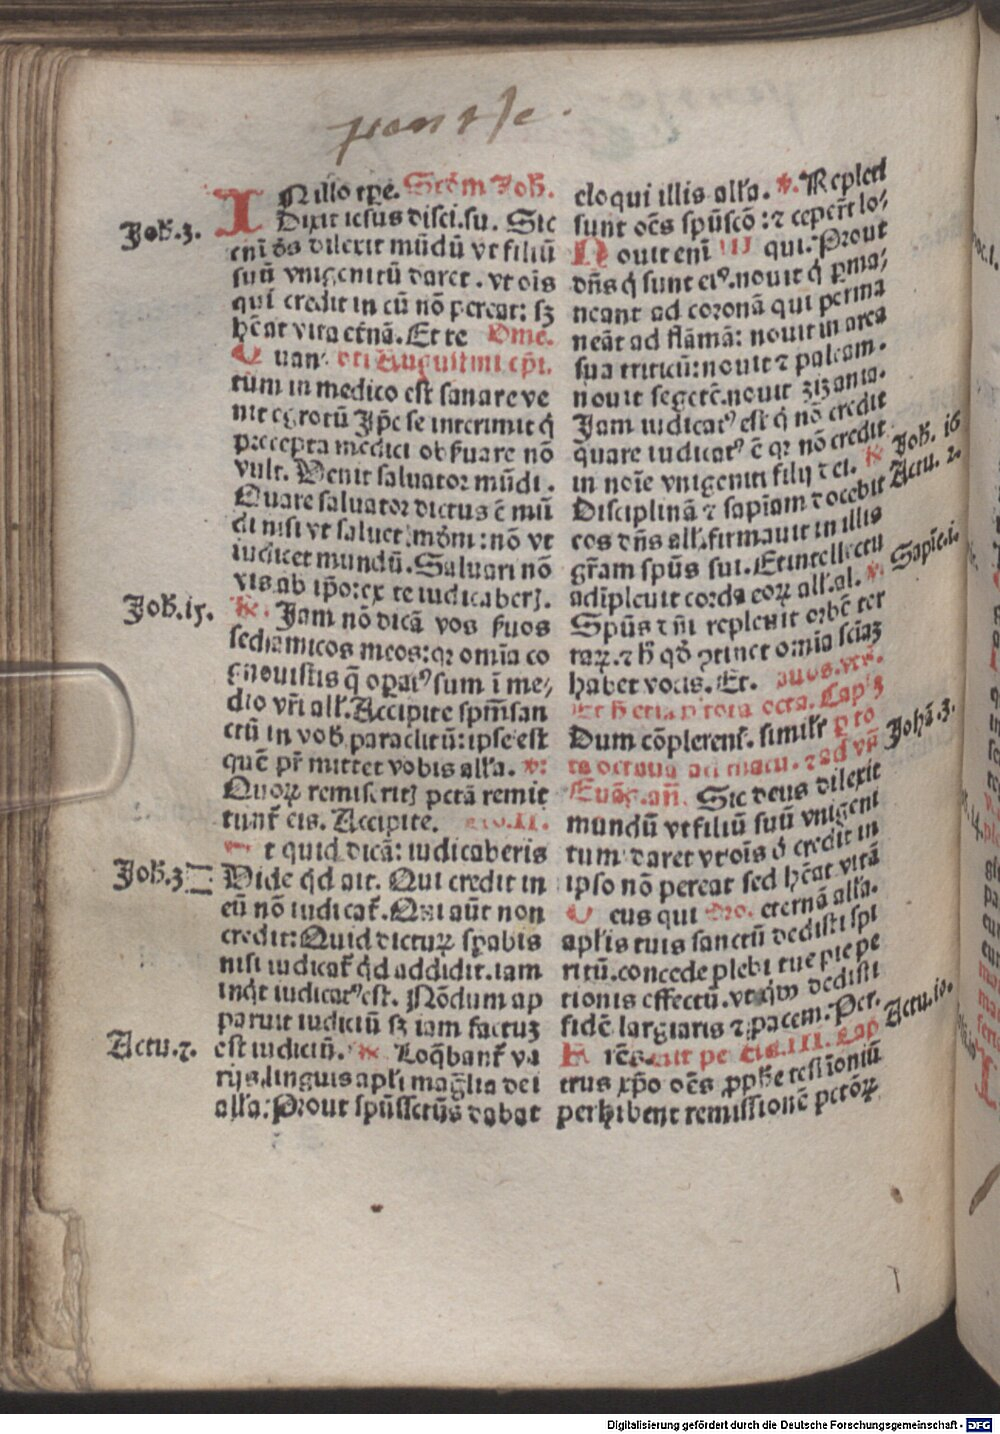 IN illo tp̄e. Scd̓m Joh̄.
Joh̄.3.
Dixit iesus disci.su. Sic
eni᷑ ds̄ dilexit mūdū vt filiū
suū vnigenitū daret. vt oīs
qui credit in eū nō pereat: sꝫ
hēat vitā et̄nā. Et re Ome.
Quan- oti Augustini epi.
tum in medico est sanare ve
nit egrotū Ip̄e se interimit q̄
precepta medici obẜuare nō
vult. Venit saluator mūdi.
Quare saluator dictus ē mū
di nisi vt saluet mōm: nō vt
iudicet mundū. Saluari nō
vis ab ip̄o: ex te iudicaberꝭ.
Joh̄.15.
℟. Jam nō dicā vos ẜuos
sed amicos meos: qꝛ omīa co
gnouistis q̄ oꝑatꝰ sum ī me/
dio vr̄i all̄. Accipite spm̄ san
ctū in vob̄ paraclitū: ipse est
quē pr̄ mittet vobis alľa. ℣.
Quoꝝ remiseritꝭ pctā remit
tunť eis. Accipite. Lec.II.
Et quid dicā: iudicaberis
Joh̄.3.
Vide qd̓ ait. Qui credit in
eū nō iudicať. Qui aūt non
credit: Quid dicturꝝ sꝑabis
nisi iudicať qd̓ addidit. iam
inqt̓ iudicatꝰ est. Nōdum ap
paruit iudiciū sꝫ iam factuꝫ
Actu.2.
est iudiciū. ℟. Loq̄banť va
rijs linguis apl̄i mag̃lia dei
alľa: Prout spūs sctūs dabat
eloqui illis alľa. ℣. Repleti
sunt oēs spūscō: ⁊ ceper̄t lo/
Nouit enī III qui. Prout
dn̄s q̄ sunt eiꝰ. nouit q̄ ꝑma/
neant ad coronā qui perma
neāt ad flāmā: nouit in area
sua triticū: nouit ⁊ paleam.
nouit segetē. nouit zizania.
Jam iudicatꝰ est q̄ nō credit
quare iudicatꝰ ē qꝛ nō credit
Joh̄. 16
in noīe vnigeniti filij dei. ℟
Actu. 2.
Disciplinā ⁊ sapīam docebit
eos dn̄s all̄. firmauit in illis
Sapīe.i.
gr̄am spūs sui. Et intellectu
adīpleuit corda eoꝝ all̄. al. ℣.
Spūs dn̄i repleuit orbē ter
raꝝ. ⁊ h̄ qd̓ ꝯtinet omīa sciāꝫ
habet vocis. Et.
Et h̄ etiā p tota octa. Capꝫ
Dum cōplerenť. simiľr p to
Johā.3.
ta octaua ad matu. ⁊ ad vn̄
Euāg.an̄. Sic deus dilexit
mundū vt filiū suū vnigeni
tum daret vt oīs q̄ credit in
ipso nō pereat sed hēat vitā
Deus qui Oro. eternā alľa.
apl̄is tuis sanctū dedisti spi
ritū. concede plebi tue pie pe
titionis effectū. vt q̇bꝰ dedisti
fidē largiaris ⁊ pacem. Per.
Actu.10.
Feria III. Cap
trus xp̄o oēs ꝓphe testīoniū
perhibent remissionē pctōrꝝ
Digitalisierung gefördert durch die Deutsche Forschungsgemeinschaft - DFG